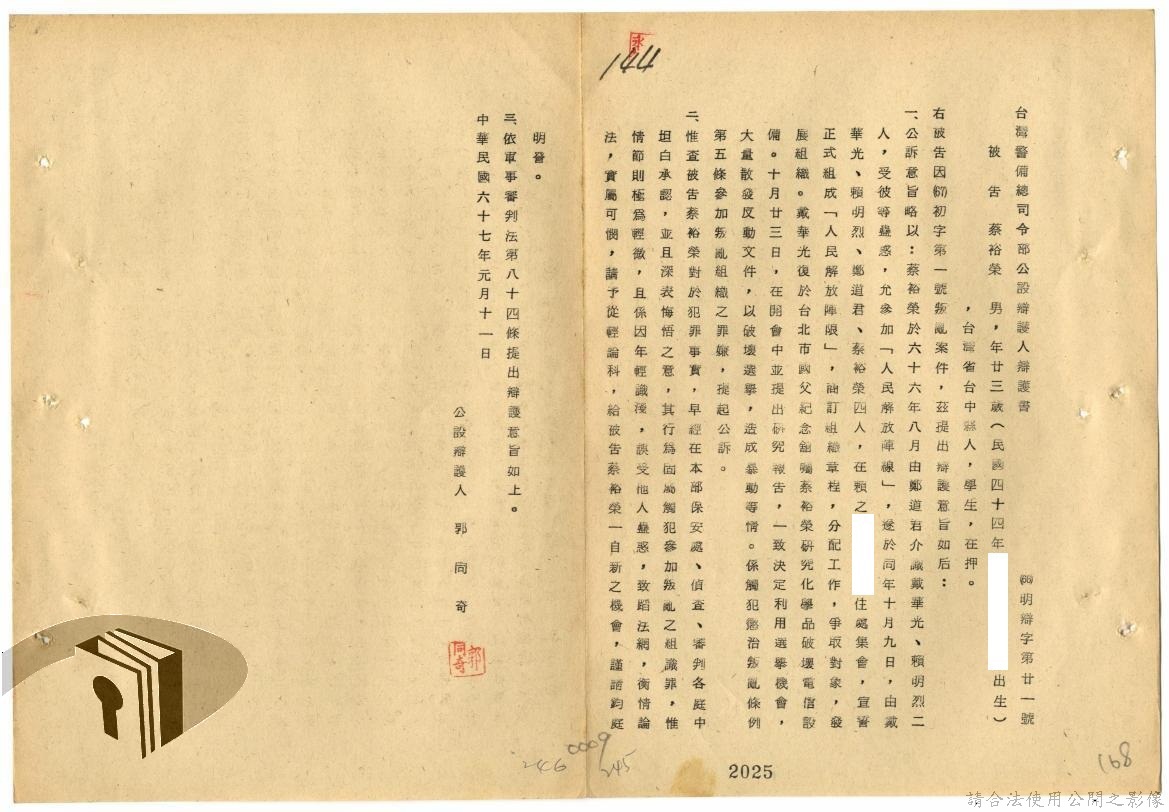 永
144
台灣警備總司令部公設辯護人辯護書
(66)明辯字第廿一號
被告 蔡裕榮 男,年廿三歲(民國四十四年 出生)
,台灣省台中縣人,學生,在押。
右被告因(67)初字第一號叛亂案件,茲提出辯護意旨如后:
一、公訴意旨略以:蔡裕榮於六十六年八月由鄭道君介識戴華光、賴明烈二
人,受彼等蠱惑,允參加「人民解放陣線」,遂於同年十月九日,由戴
華光、賴明烈、鄭道君、蔡裕榮四人,在賴之 住處集會,宣誓
正式組成「人民解放陣限」,商訂組織章程,分配工作,爭取對象,發
展組織。戴華光復於台北市國父紀念舘囑蔡裕榮研究化學品破壞電信設
備。十月廿三日,在開會中並提出研究報告,一致決定利用選舉機會,
大量散發反動文件,以破壞選舉,造成暴動等情。係觸犯懲治叛亂條例
第五條參加叛亂組織之罪嫌,提起公訴。
二、惟查被告蔡裕榮對於犯罪事實,早經在本部保安處、偵查、審判各庭中
坦白承認,並且深表悔悟之意,其行為固屬觸犯參加叛亂之組識罪,惟
情節則極為輕微,且係因年輕識淺,誤受他人蠱惑,致蹈法網,衡情論
法,實屬可憫,請予從輕論科,給被告蔡裕榮一自新之機會,謹請鈞庭
明詧。
三、依軍事審判法第八十四條提出辯護意旨如上。
中華民國六十七年元月十一日
公設辯護人 郭同奇
郭同奇
246
0009
245
2025
168
請合法使用公開之影像